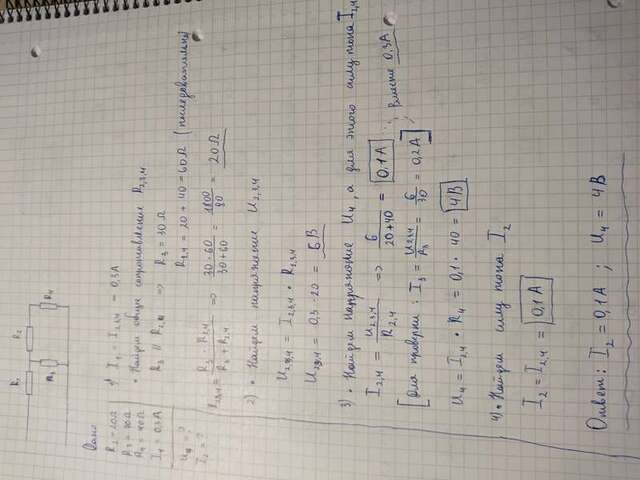 R₁ R₂
R₃ R₄
Дано
R₂ = 20 Ω
R₃ = 30 Ω
R₄ = 40 Ω
I₁ = 0,3 А
U₄ = ?
I₂ = ?
1) I₁ = I₂,₃,₄ = 0,3 А
• Найдём общее сопротивление R₂,₃,₄
R₃ || R₂,₄ => R₃ = 30 Ω
R₂,₄ = 20 + 40 = 60 Ω (последовательно)
R₂,₃,₄ = R₃ · R₂,₄ / R₃ + R₂,₄ => 30 · 60 / 30 + 60 = 1800 / 90 = 20 Ω
2) • Найдём напряжение U₂,₃,₄
U₂,₃,₄ = I₂,₃,₄ · R₂,₃,₄
U₂,₃,₄ = 0,3 · 20 = 6 В
3) • Найдём напряжение U₄, а для этого силу тока I₂,₄
I₂,₄ = U₂,₃,₄ / R₂,₄ => 6 / 20 + 40 = 0,1 А
[Для проверки: I₃ = U₂,₃,₄ / R₃ = 6 / 30 = 0,2 А] ; вместе 0,3 А
U₄ = I₂,₄ · R₄ = 0,1 · 40 = 4 В
4) • Найдём силу тока I₂
I₂ = I₂,₄ = 0,1 А
Ответ: I₂ = 0,1 А ; U₄ = 4 В